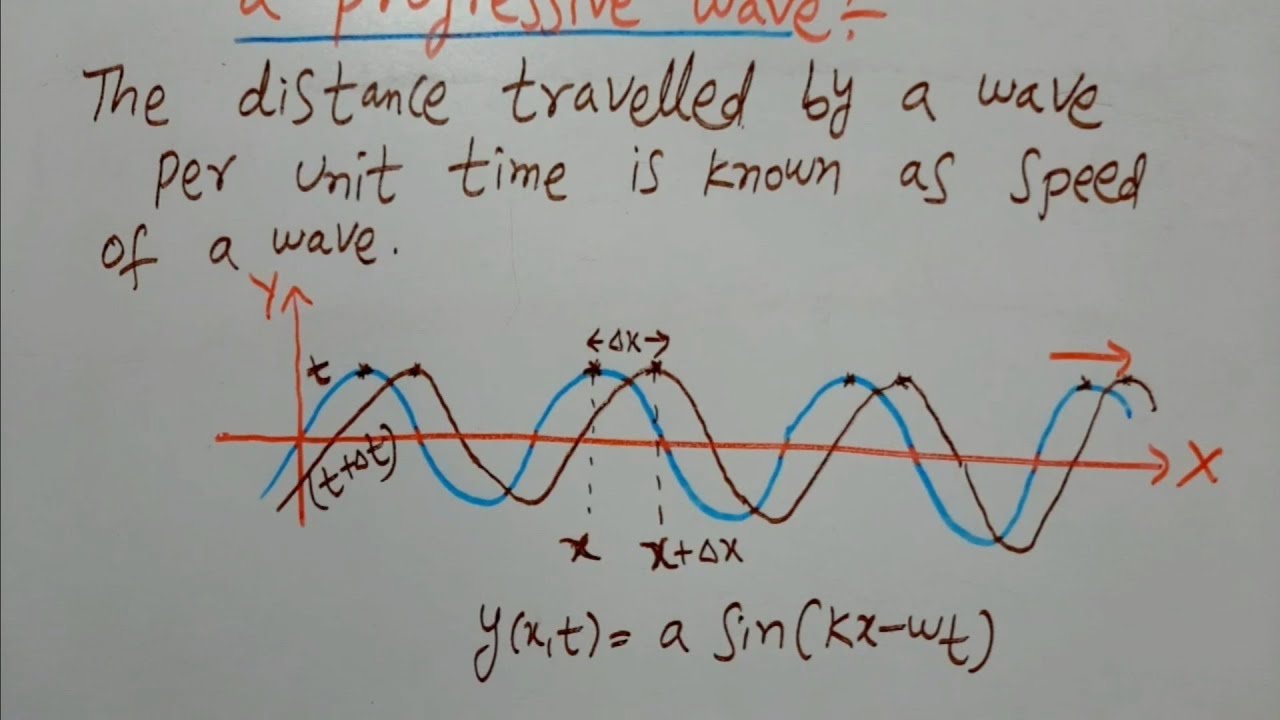 a progressive wave:-
The distance travelled by a wave
per unit time is known as speed
of a wave.
Y
←Δx→
t
(t+Δt)
X
x
x+Δx
y(x,t) = a sin(kx-wt)